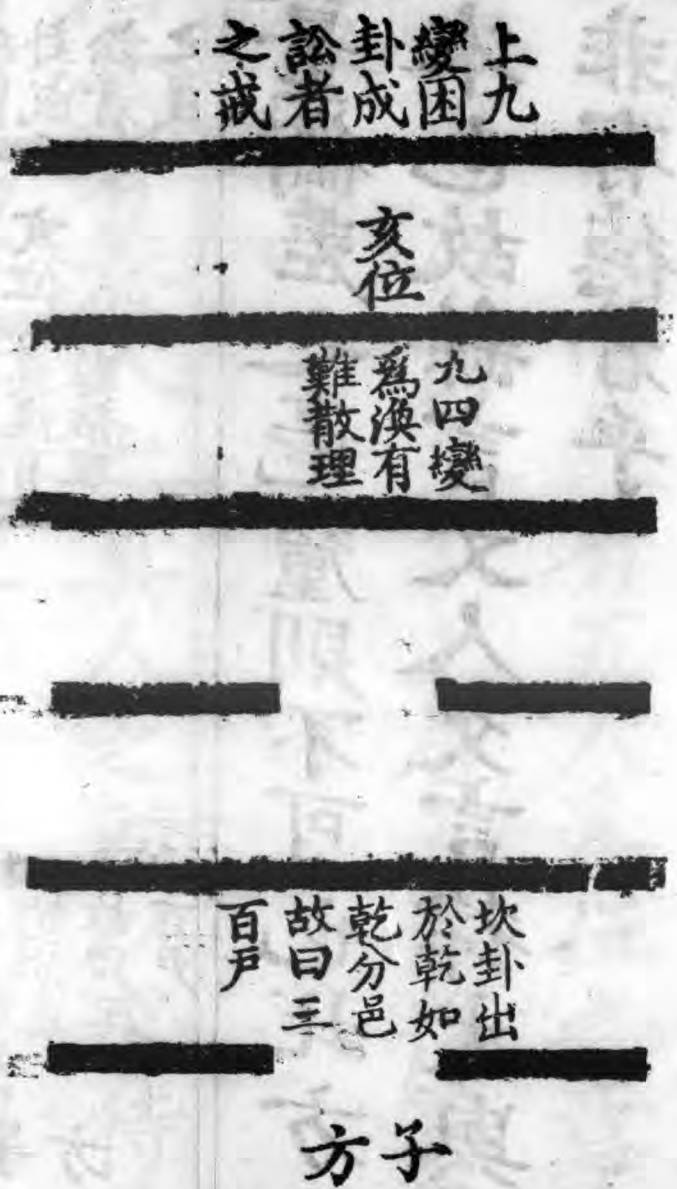 上九
變困
卦成
訟者
之戒
亥位
九四變
爲渙有
難散理
坎卦出
於乾如
乾分邑
故曰三
百戸
子
方